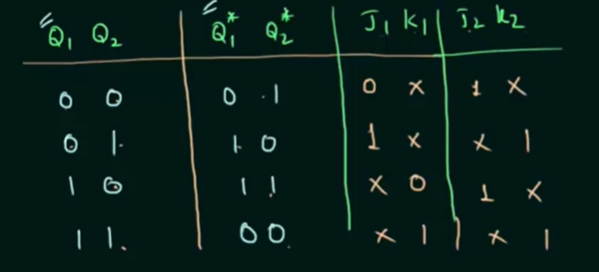 Q₁ Q₂ Q₁* Q₂* J₁ K₁ J₂ K₂
0 0 0 1 0 × 1 ×
0 1 1 0 1 × × 1
1 0 1 1 × 0 1 ×
1 1 0 0 × 1 × 1